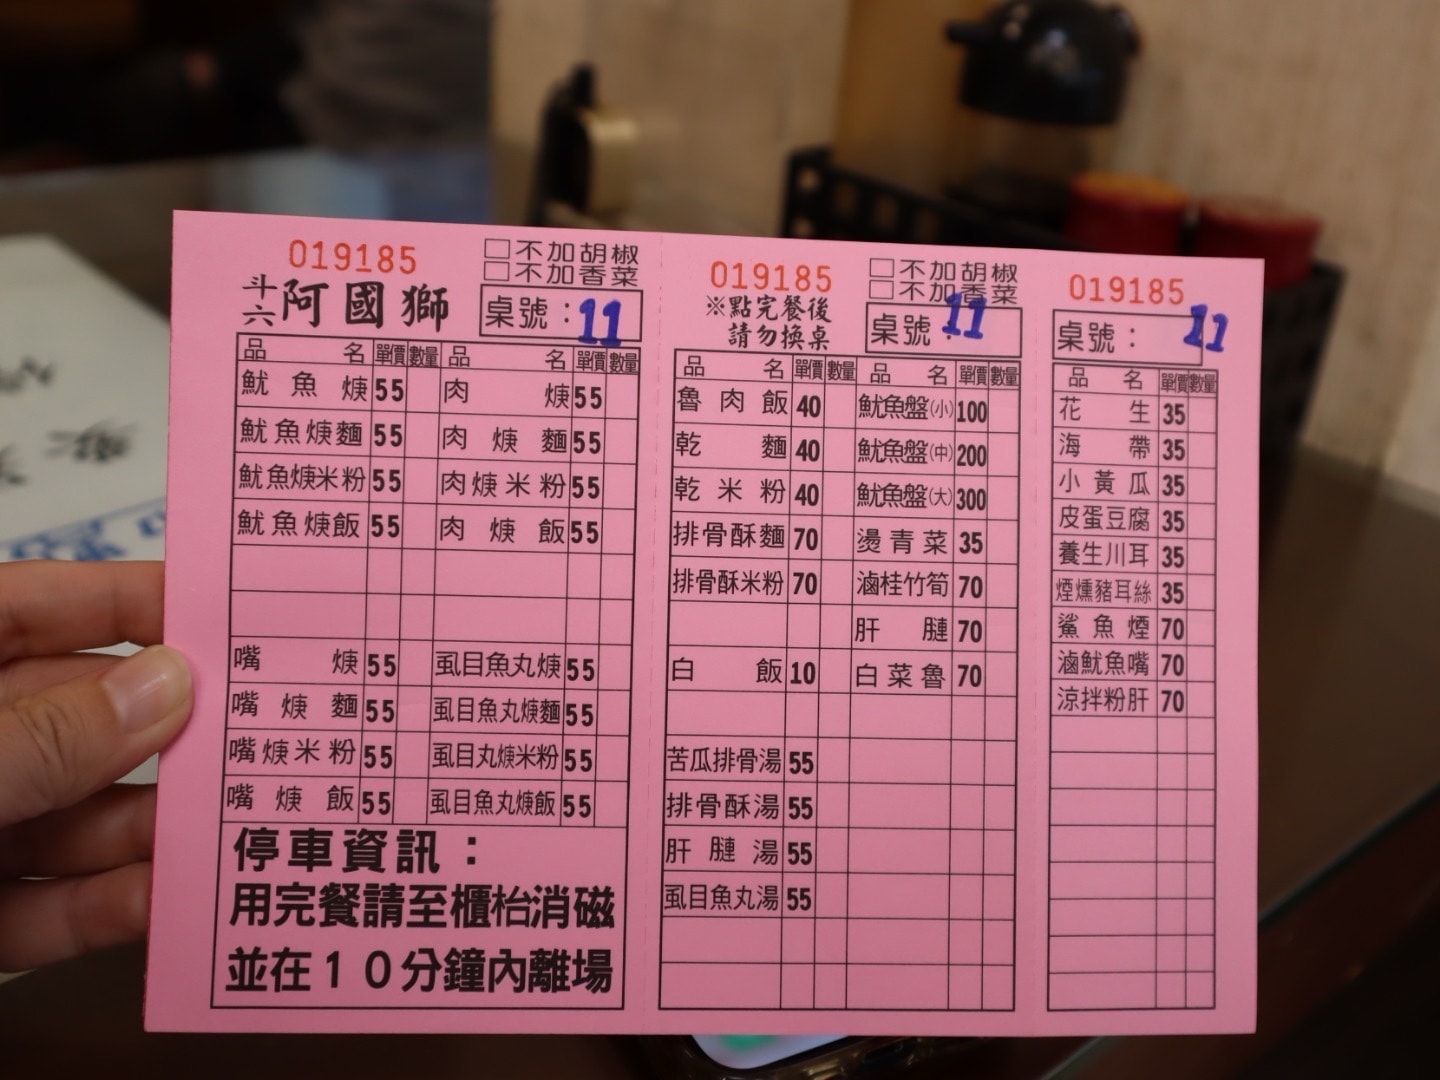 019185
□不加胡椒
□不加香菜
斗六阿國獅
桌號：11
品名 單價 數量 品名 單價 數量
魷魚焿 55 肉焿 55
魷魚焿麵 55 肉焿麵 55
魷魚焿米粉 55 肉焿米粉 55
魷魚焿飯 55 肉焿飯 55
嘴焿 55 虱目魚丸焿 55
嘴焿麵 55 虱目魚丸焿麵 55
嘴焿米粉 55 虱目丸焿米粉 55
嘴焿飯 55 虱目魚丸焿飯 55
停車資訊：
用完餐請至櫃枱消磁
並在10分鐘內離場
019185
□不加胡椒
□不加香菜
※點完餐後
請勿換桌
桌號：11
品名 單價 數量 品名 單價 數量
魯肉飯 40 魷魚盤(小) 100
乾麵 40 魷魚盤(中) 200
乾米粉 40 魷魚盤(大) 300
排骨酥麵 70 燙青菜 35
排骨酥米粉 70 滷桂竹筍 70
肝腱 70
白飯 10 白菜魯 70
苦瓜排骨湯 55
排骨酥湯 55
肝腱湯 55
虱目魚丸湯 55
019185
桌號：11
品名 單價 數量
花生 35
海帶 35
小黃瓜 35
皮蛋豆腐 35
養生川耳 35
煙燻豬耳絲 35
鯊魚煙 70
滷魷魚嘴 70
涼拌粉肝 70